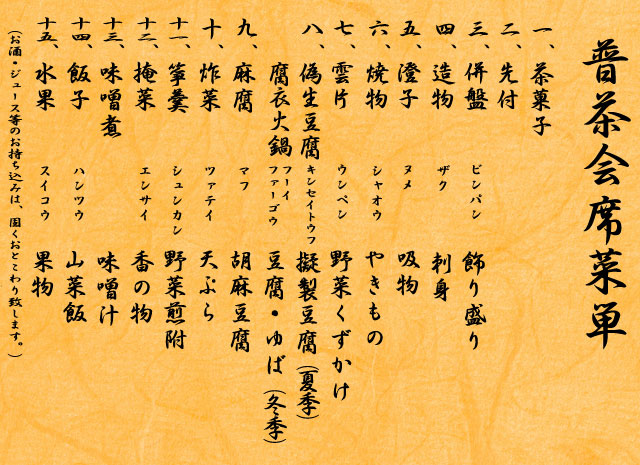 普茶会席菜単
一、茶菓子
二、先付
三、併盤 ビンパン 飾り盛り
四、造物 ザク 刺身
五、澄子 ヌメ 吸物
六、焼物 シャオウ やきもの
七、雲片 ウンペン 野菜くずかけ
八、偽生豆腐 キンセイトウフ 擬製豆腐(夏季)
腐衣火鍋 フーイファーゴウ 豆腐・ゆば(冬季)
九、麻腐 マフ 胡麻豆腐
十、炸菜 ツァテイ 天ぷら
十一、筝羹 シュンカン 野菜煎附
十二、掩菜 エンサイ 香の物
十三、味噌煮 味噌汁
十四、飯子 ハンツウ 山菜飯
十五、水果 スイコウ 果物
(お酒・ジュース等のお持ち込みは、固くおとこわり致します。)